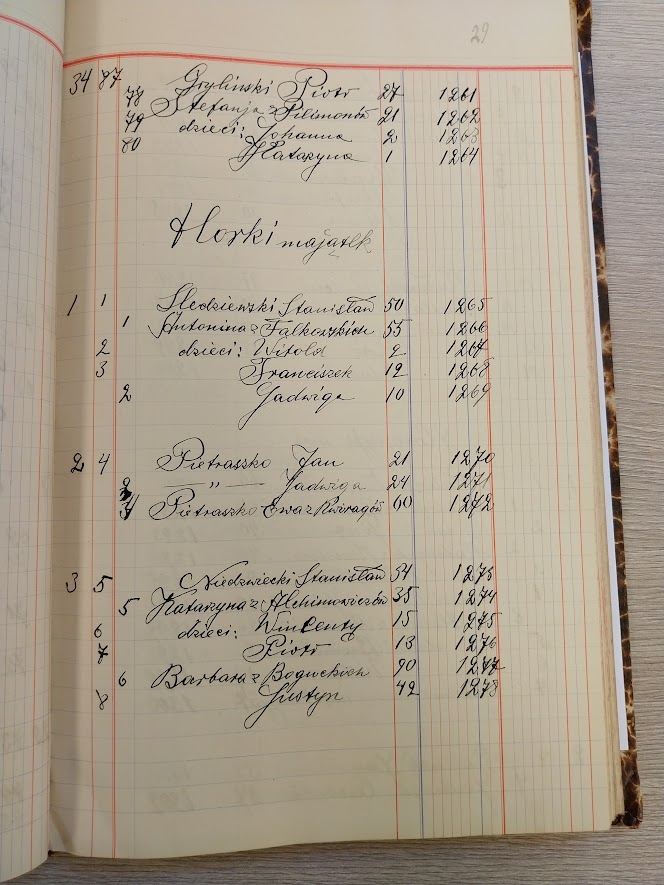 29
34 87 Gryliński Piotr 27 1261
78 Stefanja z Filimonów 21 1262
79 dzieci: Johanna 2 1263
80 Katarzyna 1 1264
Horki majątek
1 1 Śledziewski Stanisław 50 1265
1 Antonina z Falkowskich 55 1266
2 dzieci: Witold 2 1267
3 Franciszek 12 1268
2 Jadwiga 10 1269
2 4 Pietraszko Jan 21 1270
— " — Jadwiga 24 1271
4 Pietraszko Ewa z Kwiragów 60 1272
3 5 Niedzwiecki Stanisław 54 1273
5 Katarzyna z Alchimowiczów 35 1274
6 dzieci: Wincenty 15 1275
7 Piotr 13 1276
6 Barbara z Boguckich 90 1277
8 Justyn 42 1278